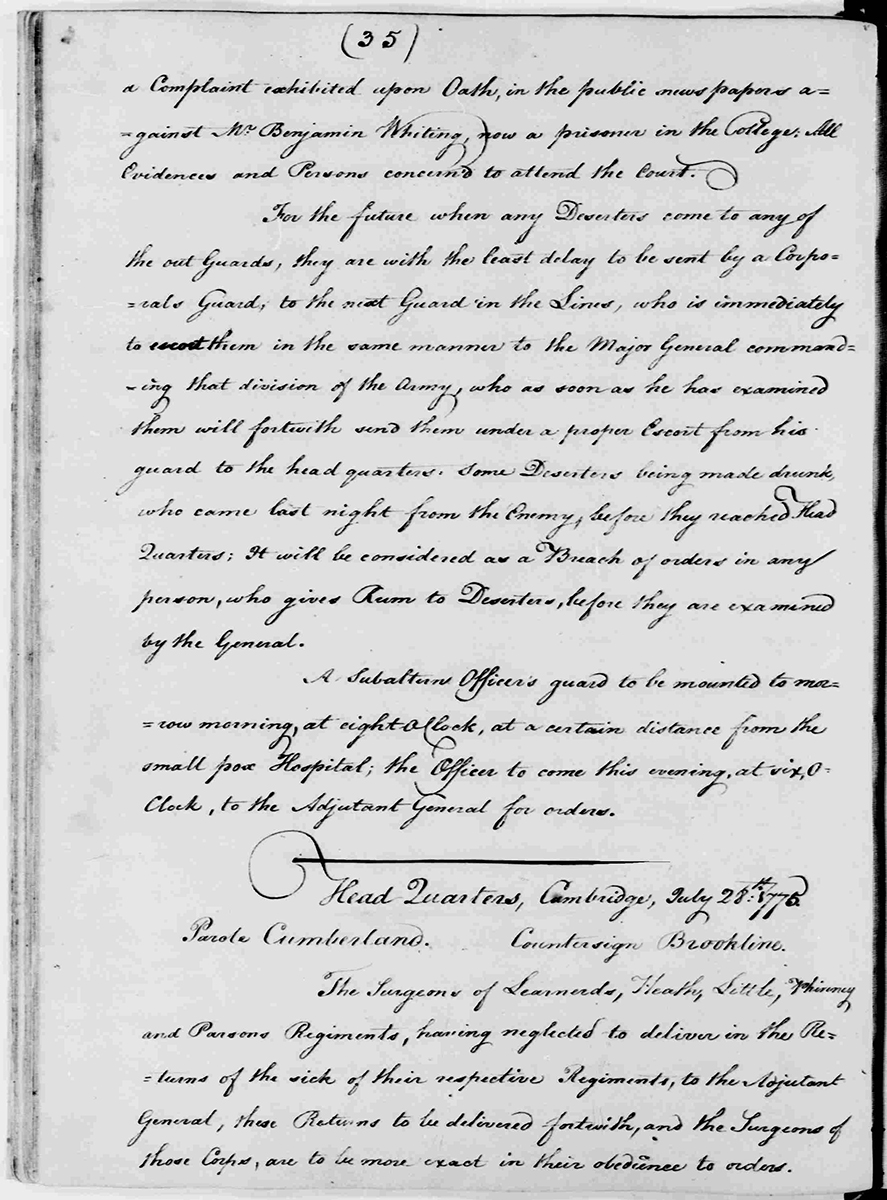 (35)
a Complaint exhibited upon Oath, in the public news papers a=
=gainst Mr. Benjamin Whiting, now a prisoner in the College: All
Evidences and Persons concernd to attend the Court.
For the future when any Deserters come to any of
the out Guards, they are with the least delay to be sent by a Corpo=
=rals Guard, to the next Guard in the Lines, who is immediately
to escort them in the same manner to the Major General command=
=ing that division of the Army, who as soon as he has examined
them will fortwith send them under a proper Escort from his
guard to the head quarters. Some Deserters being made drunk,
who came last night from the Enemy, before they reached Head
Quarters; It will be considered as a Breach of orders in any
person, who gives Rum to Deserters, before they are examined
by the General.
A Subaltern Officer's guard to be mounted to mor=
=row morning, at eight O Clock, at a certain distance from the
small pox Hospital; the Officer to come this evening, at six, O-
Clock, to the Adjutant General for orders.
Head Quarters, Cambridge, July 28th: 1775.
Parole Cumberland. Countersign Brookline.
The Surgeons of Learnerds, Heath, Little, Phinney
and Parsons Regiments, having neglected to deliver in the Re=
=turns of the sick of their respective Regiments, to the Adjutant
General, these Returns to be delivered fortwith, and the Surgeons of
those Corps, are to be more exact in their obedience to orders.